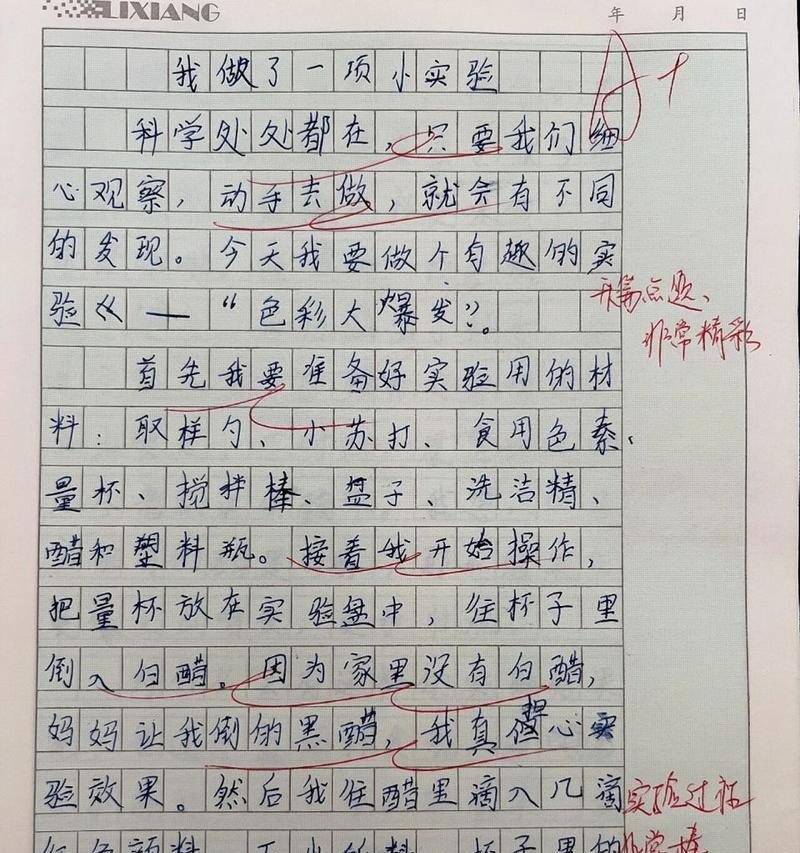 LIXIANG
年 月 日
我做了一项小实验
A+
科学处处都在，只要我们细
心观察，动手去做，就会有不同
的发现。今天我要做个有趣的实
验《—“色彩大爆发”。
开篇点题、
非常精彩
首先我要准备好实验用的材
料：取样勺、小苏打、食用色素、
量杯、搅拌棒、盘子、洗洁精、
醋和塑料瓶。接着我开始操作，
把量杯放在实验盘中，往杯子里
倒入白醋。因为家里没有白醋，
妈妈让我倒的黑醋，我真担心实
验效果。然后我往醋里滴入几滴
实验过程
非常棒
红色颜料 杯子里的